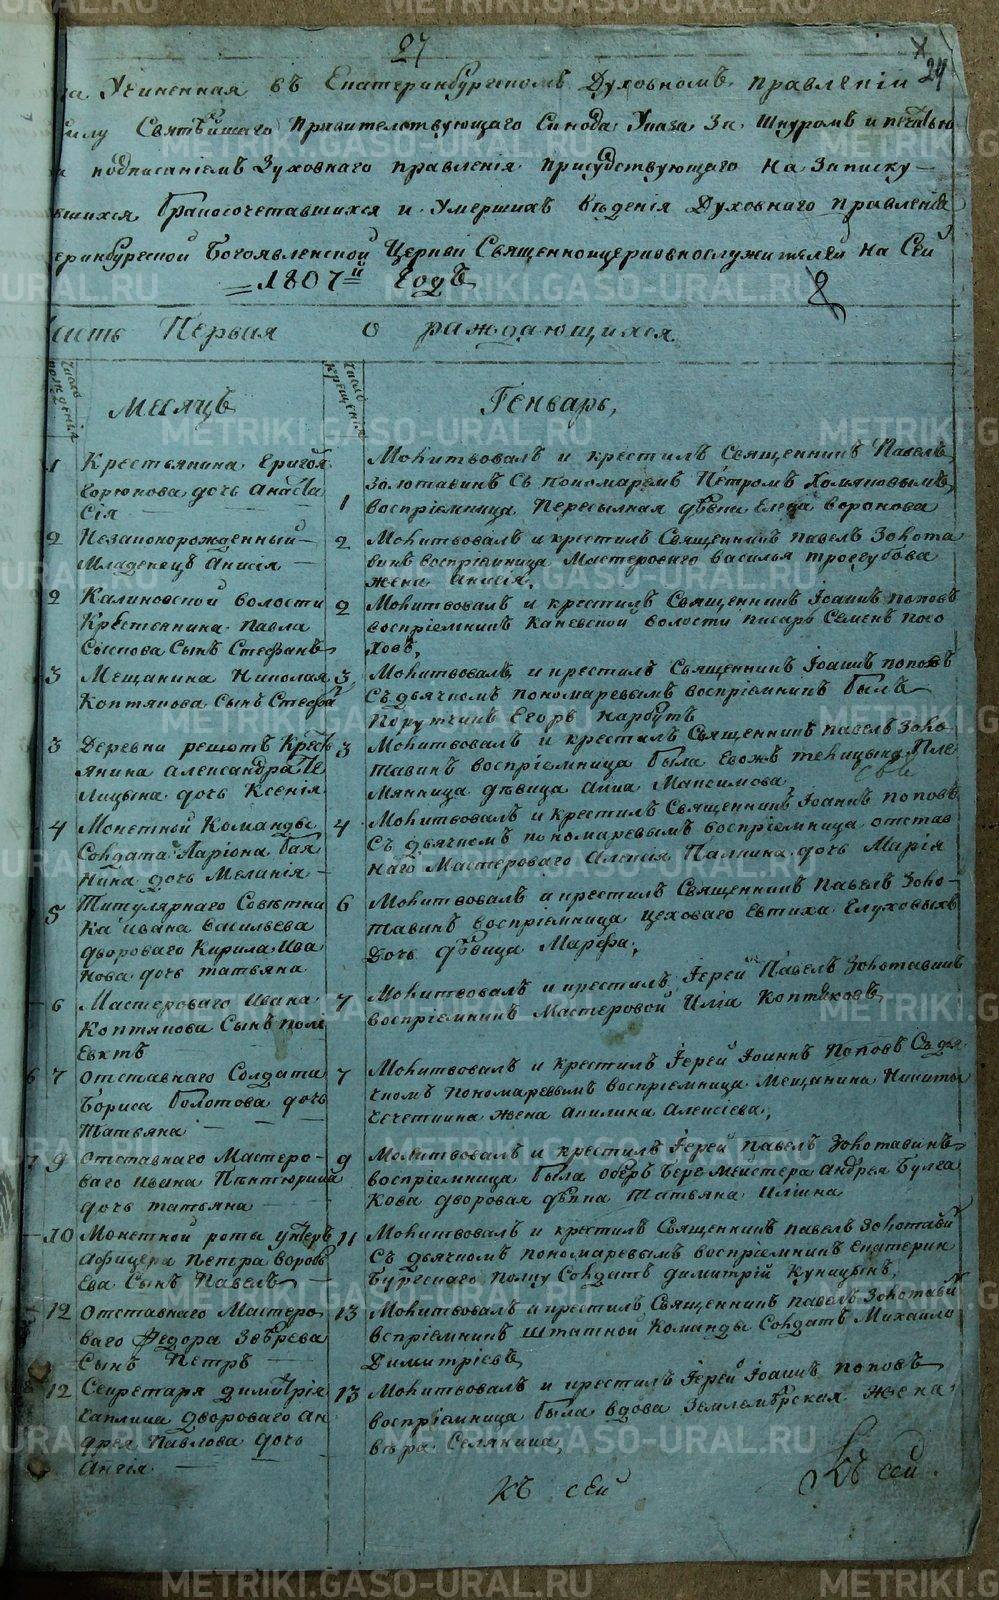 27
24
Учиненная въ Екатеринбургскомъ Духовномъ правленіи
силу Святѣйшаго Правителствующаго Синода Указа За Шнуромъ и печатью
подписаніемъ Духовнаго правленія присудствующаго на Записку
вшихся бракосочетавшихся и Умершихъ вѣденія Духовнаго правленія
еринбургской Богоявленской Церкви Священноцерковнослужителей на Сей
1807й Годъ
Часть Первая о раждающихся
число рожденія
Месяцъ
число крещенія
Генварь,
1 Крестьянина Григор
Горюнова дочь Анаста
сія
1 Молитвовалъ и крестилъ Священникъ Павелъ
Золотавинъ Съ пономаремъ Петромъ Хомяковымъ,
воспріемница Пересылная дѣвка Елена воронова
2 Незаконорожденный
Младенецъ Анисія
2 Молитвовалъ и крестилъ Священникъ павелъ Золота
винъ воспріемница Мастероваго василья
жена Анисія,
2 Калиновской волости
Крестьянина Павла
Сынъ Стефанъ
2 Молитвовалъ и крестилъ Священникъ Іоаннъ поповъ
воспріемникъ Каневской волости писарь Семенъ
ховъ,
3 Мещанина Николая
Коптякова Сынъ Стефа
3 Молитвовалъ и крестилъ Священникъ Іоаннъ поповъ
Съ дьячкомъ пономаревымъ воспріемникъ былъ
Порутчикъ Егоръ Нарбутъ
3 Деревни решетъ Кресть
янина Александра Те
лицына дочь Ксенія
3 Молитвовалъ и крестилъ Священникъ павелъ Золо-
тавинъ воспріемница была Евожъ телицына Пле
мянница дѣвица Анна Максимова
4 Монетной Команды
Солдата Ларіона
дочь Меланія
4 Молитвовалъ и Крестилъ Священникъ Іоаннъ поповъ
Съ дьячкомъ пономаревымъ воспріемница отстав
наго Мастероваго Алексія Палкина дочь Марія
5 Титулярнаго Совѣтни
ка ивана васильева
двороваго Кирила Ива
нова дочь татьяна
6 Молитвовалъ и крестилъ Священникъ павелъ Золо-
тавинъ воспріемница цеховаго Евтиха Глуховыхъ
дочь дѣвица Марфа,
6 Мастероваго Ивана
Коптякова Сынъ поли
евктъ
7 Молитвовалъ и крестилъ Іерей Павелъ Золотавинъ
воспріемникъ Мастеровой Иліа Коптяковъ
7 отставнаго Солдата
Бориса Болотова дочь
Татьяна
7 Молитвовалъ и крестилъ Іерей Іоаннъ Поповъ Съ дья
чкомъ пономаревымъ воспріемница Мещанина Никиты
Чечеткина жена Акилина Алексіева,
9 отставнаго Мастеро-
ваго ивана
дочь татьяна
9 Молитвовалъ и крестилъ Іерей Павелъ Золотавинъ
воспріемница была оберъ Берг Мейстера андрея Булга
кова дворовая дѣвка Татьяна Иліина
10 Монетной роты унтеръ
Афицера Петра Воробь
ева Сынъ Павелъ
11 Молитвовалъ и крестилъ Священникъ павелъ Золотавинъ
Съ дьячкомъ пономаревымъ воспріемникъ екатерин
бургскаго полку Солдатъ димитрій Куницынъ,
12 отставнаго Мастеро-
ваго Федора Зверева
Сынъ Петръ
13 Молитвовалъ и крестилъ Священникъ павелъ Золотавинъ
вспріемникъ штатной команды Солдатъ Михайло
Димитріевъ
12 Секретаря димитрія
каплина двороваго Ан
дрея павлова дочь
Ангія
13 Молитвовалъ и крестилъ Іерей Іоаннъ поповъ
воспріемница была вдова Землемѣрская жена
вѣра Селянина,
Къ сей
Къ сей